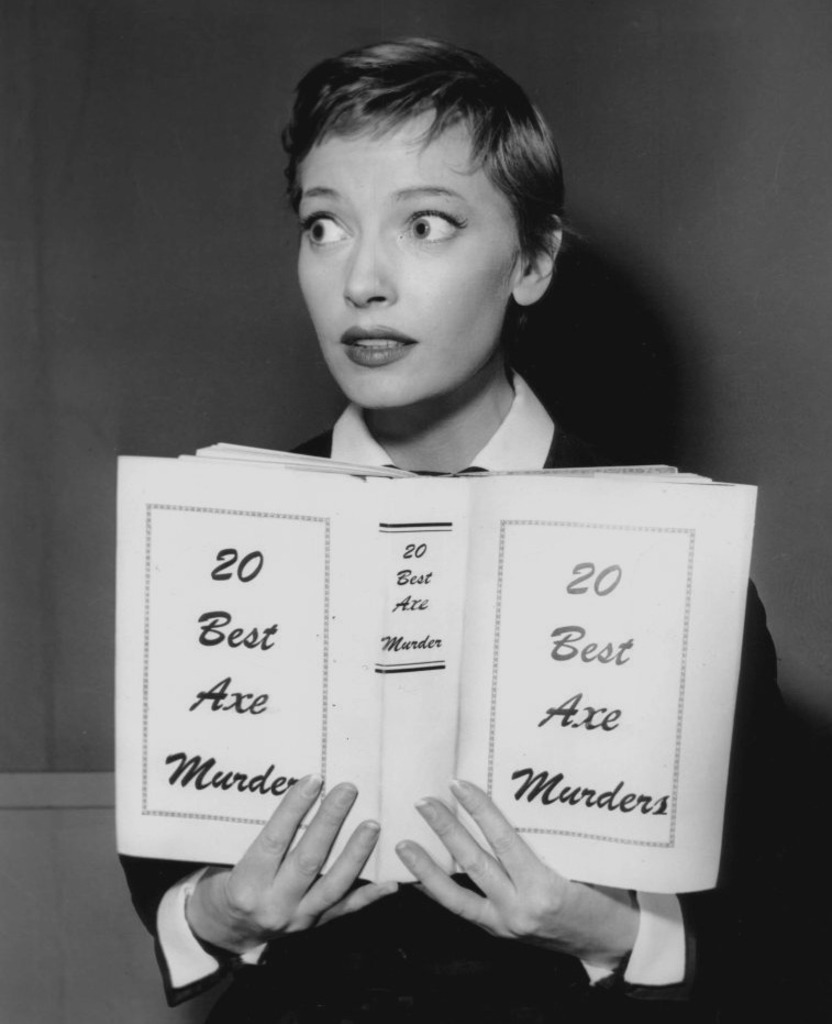 20
Best
Axe
Murder
20
Best
Axe
Murder
20
Best
Axe
Murders